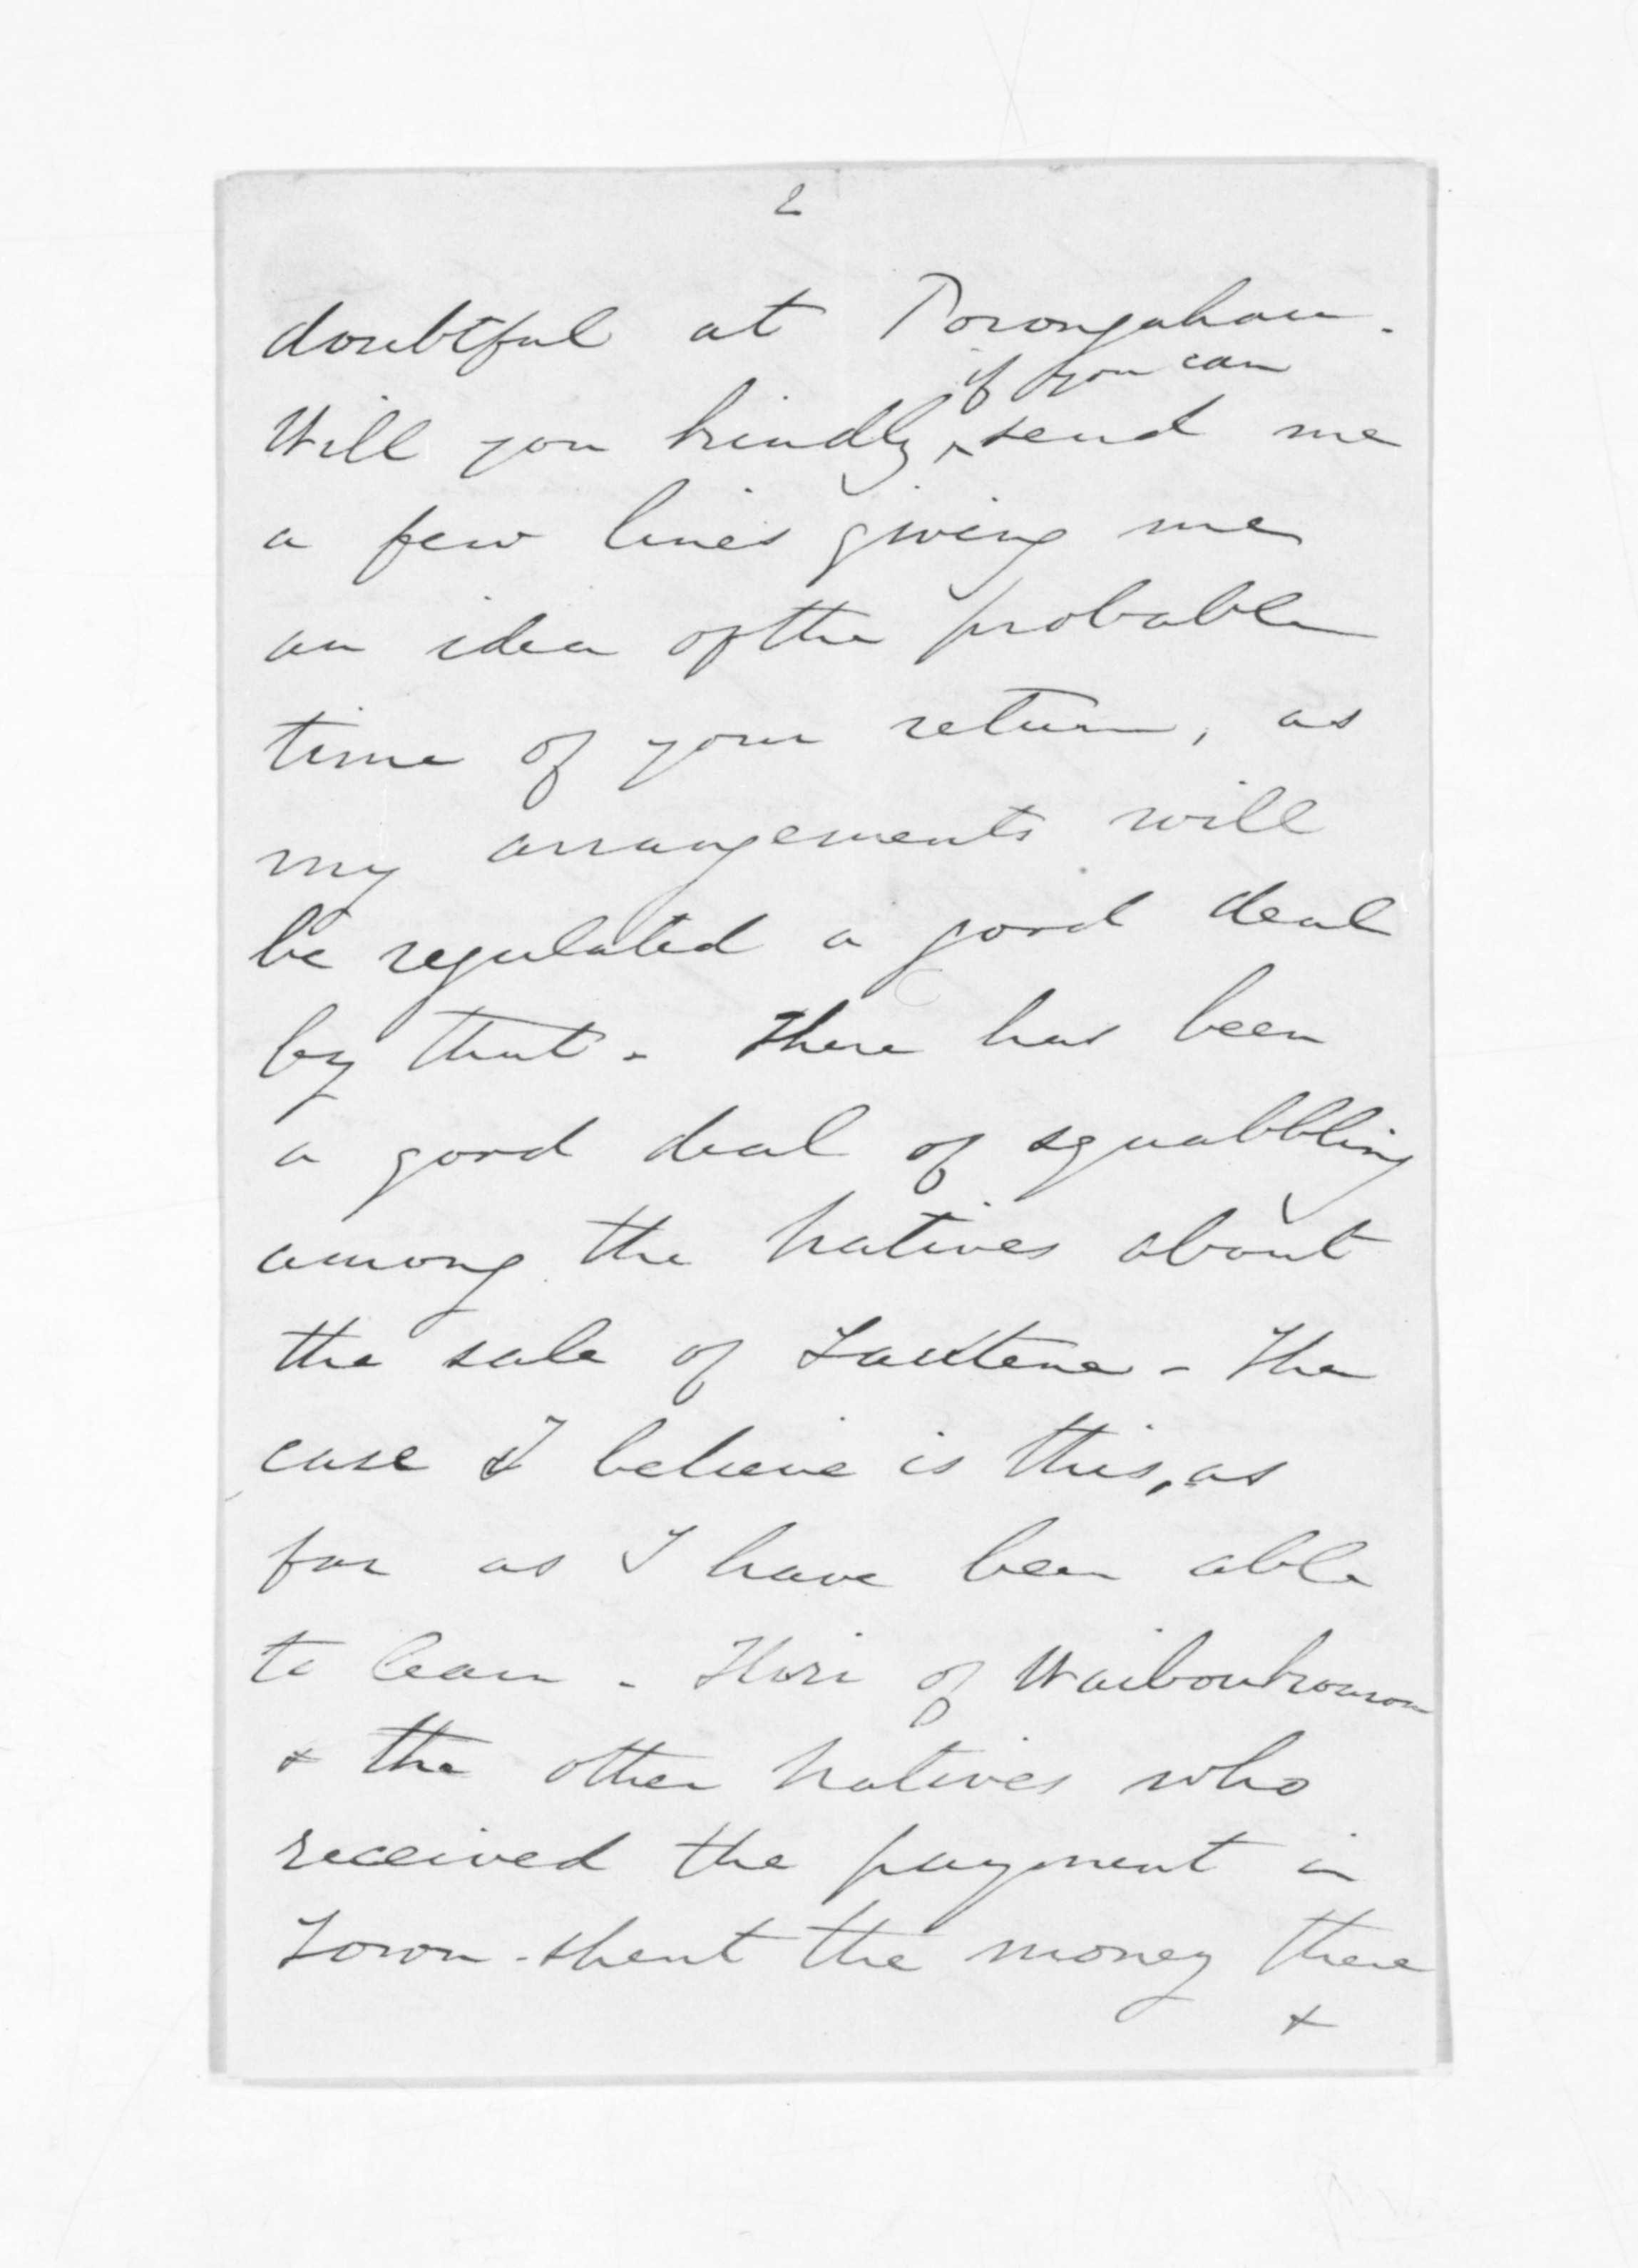 2
doubtful at Porongahau.
if you can
Will you kindly ^ send me
a few lines giving me
an idea of the probable
time of your return, as
my arrangements will
be regulated a good deal
by that. There has been
a good deal of squabbling
among the Natives about
the sale of - The
case I believe is this, as
far as I have been able
to learn - Hori of
& the other Natives who
received the payment in
Town - spent the money there
&